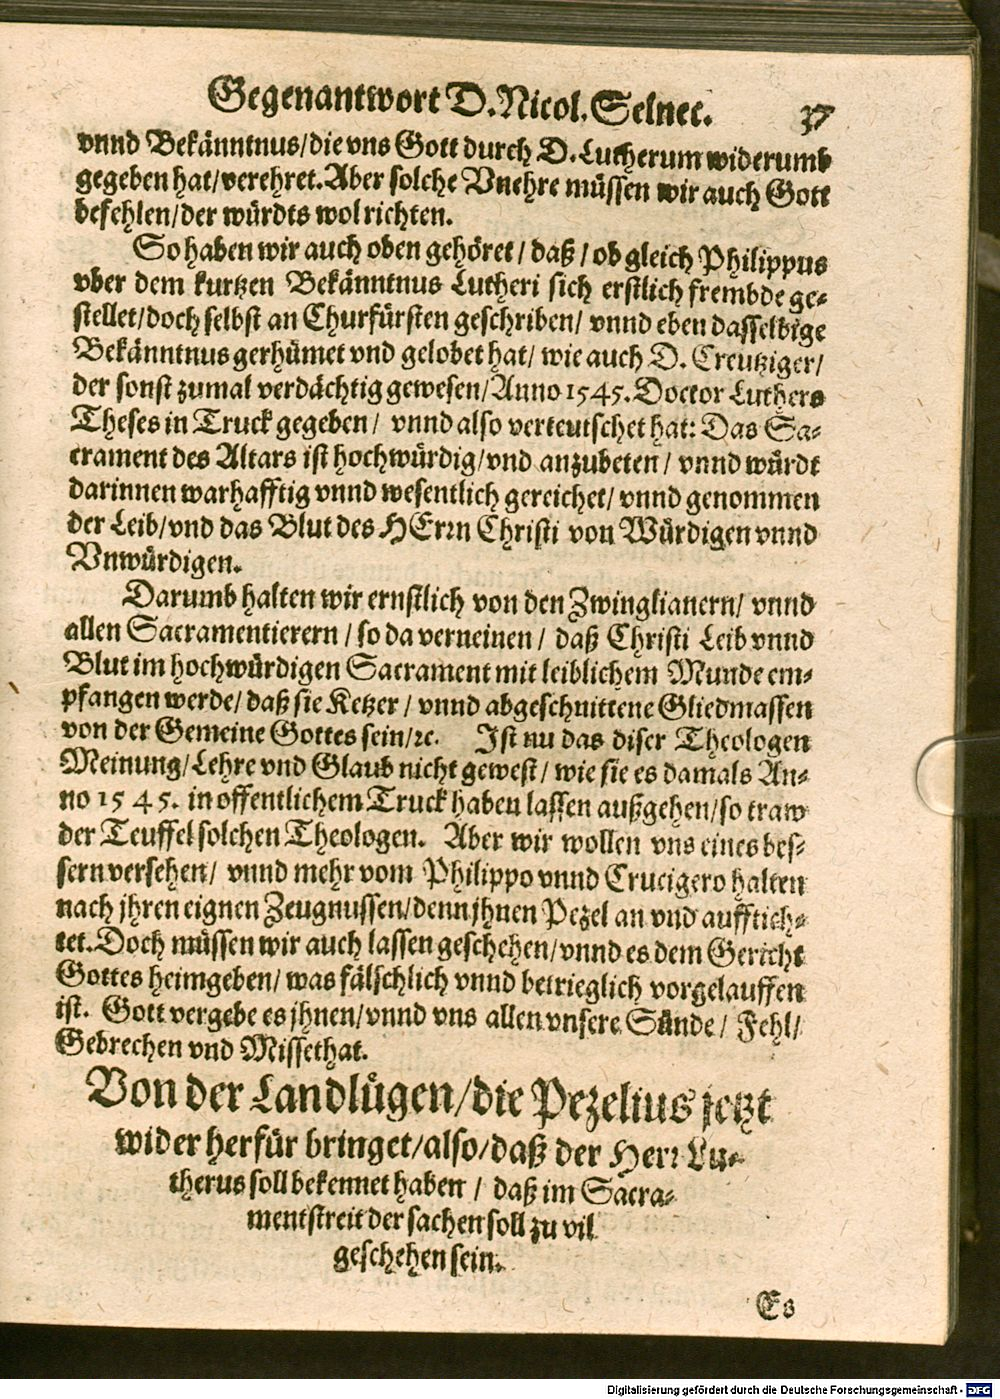 Gegenantwort D. Nicol. Selnec. 37
vnnd Bekänntnus/die vns Gott durch D. Lutherum widerumb
gegeben hat/verehret. Aber solche Vnehre müssen wir auch Gott
befehlen/der würdts wol richten.
So haben wir auch oben gehöret/ daß/ ob gleich Philippus
vber dem kurtzen Bekänntnus Lutheri sich erstlich frembde ge-
stellet/doch selbst an Churfürsten geschriben/ vnnd eben dasselbige
Bekänntnus gerhümet vnd gelobet hat/ wie auch D. Creutziger/
der sonst zumal verdächtig gewesen/Anno 1545. Doctor Luthers
Theses in Truck gegeben/ vnnd also verteutschet hat: Das Sa-
crament des Altars ist hochwürdig/vnd anzubeten/ vnnd würdt
darinnen warhafftig vnnd wesentlich gereichet/ vnnd genommen
der Leib/vnd das Blut des HErrn Christi von Würdigen vnnd
Vnwürdigen.
Darumb halten wir ernstlich von den Zwinglianern/ vnnd
allen Sacramentierern/ so da verneinen/ daß Christi Leib vnnd
Blut im hochwürdigen Sacrament mit leiblichem Munde em-
pfangen werde/ daß sie Ketzer/ vnnd abgeschnittene Gliedmassen
von der Gemeine Gottes sein/ꝛc. Ist nu das diser Theologen
Meinung/Lehre vnd Glaub nicht gewest/ wie sie es damals An-
no 1545. in offentlichem Truck haben lassen außgehen/so traw
der Teuffel solchen Theologen. Aber wir wollen vns eines bes-
sern versehen/ vnnd mehr vom Philippo vnnd Crucigero halten
nach jhren eignen Zeugnussen/denn jhnen Pezel an vnd aufftich-
tet. Doch müssen wir auch lassen geschehen/vnnd es dem Gericht
Gottes heimgeben/ was fälschlich vnnd betrieglich vorgelauffen
ist. Gott vergebe es jhnen/vnnd vns allen vnsere Sünde/ Fehl/
Gebrechen vnd Missethat.
Von der Landlügen/die Pezelius jetzt
wider herfür bringet/also/daß der Herr Lu-
therus soll bekennet haben/ daß im Sacra-
mentstreit der sachen soll zu vil
geschehen sein.
Es
Digitalisierung gefördert durch die Deutsche Forschungsgemeinschaft - DFG